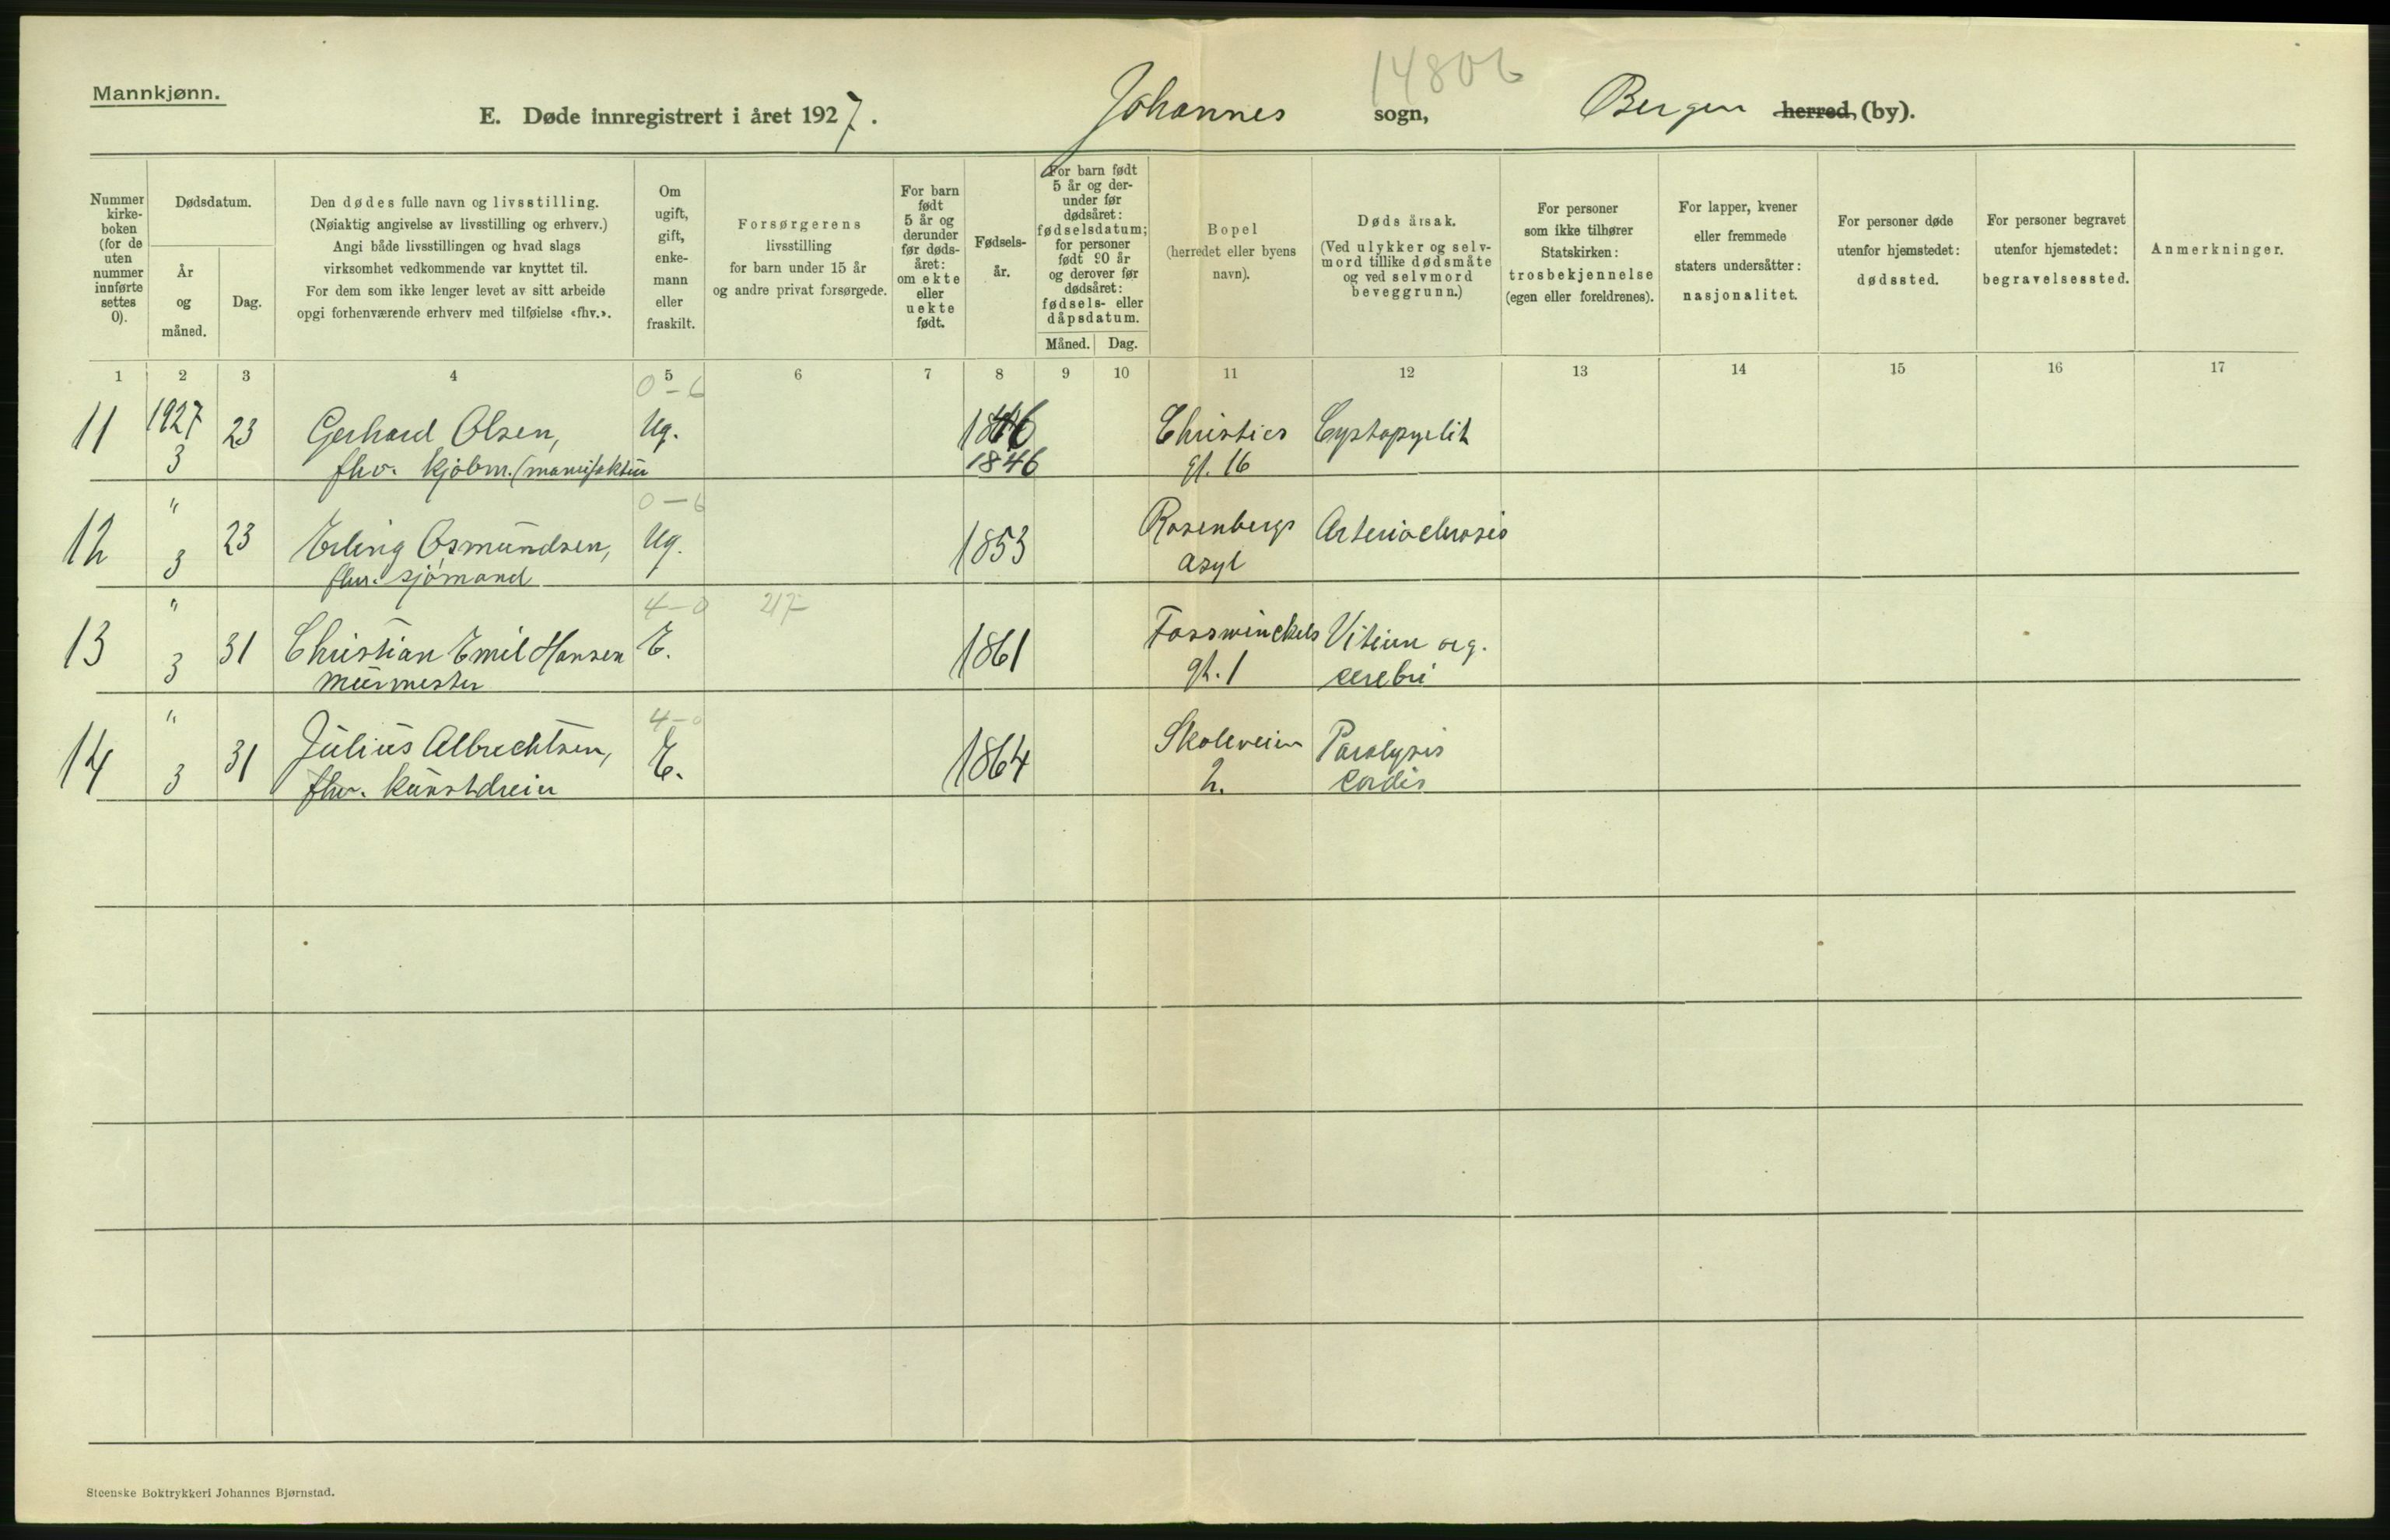 Mannkjønn.
14806
E. Døde innregistrert i året 1927. Johannes sogn, Bergen herred (by).
Nummer kirke-boken (for de uten nummer innførte settes 0).
Dødsdatum.
År og måned.
Dag.
Den dødes fulle navn og livsstilling.
(Nøiaktig angivelse av livsstilling og erhverv.)
Angi både livsstillingen og hvad slags
virksomhet vedkommende var knyttet til.
For dem som ikke lenger levet av sitt arbeide
opgi forhenværende erhverv med tilføielse «fhv.».
Om ugift, gift, enke-mann eller fraskilt.
Forsørgerens
livsstilling
for barn under 15 år
og andre privat forsørgede.
For barn født 5 år og derunder før døds-året: om ekte eller uekte født.
Fødsels-år.
For barn født 5 år og der-under før dødsåret: fødselsdatum; for personer født 90 år og derover før dødsåret: fødsels- eller dåpsdatum.
Måned. Dag.
Bopel
(herredet eller byens
navn).
Dødsårsak.
(Ved ulykker og selv-
mord tillike dødsmåte
og ved selvmord
beveggrunn.)
For personer
som ikke tilhører
Statskirken:
trosbekjennelse
(egen eller foreldrenes).
For lapper, kvener
eller fremmede
staters undersåtter:
nasjonalitet.
For personer døde
utenfor hjemstedet:
dødssted.
For personer begravet
utenfor hjemstedet:
begravelsessted.
Anmerkninger.
1 2 3 4 5 6 7 8 9 10 11 12 13 14 15 16 17
0-6
11 1927 23 Gerhard Olsen, Ug. 1846 Christies Cystopyelit
3 fhv. kjøbm. (manufaktur 1846 gt. 16
" 0-6
12 3 23 Erling Osmundsen, Ug. 1853 Rosenbergs Arterioclerosis
fhv. sjømand asyl
" 4-0 217
13 3 31 Christian Emil Hansen E. 1861 Fosswinckels Vitium org.
murmester gt. 1 cerebri
" 4-0
14 3 31 Julius Albrechtsen, E. 1864 Skoleveien Paralysis
fhv. kunstdreier 2. cordis
Steenske Boktrykkeri Johannes Bjørnstad.